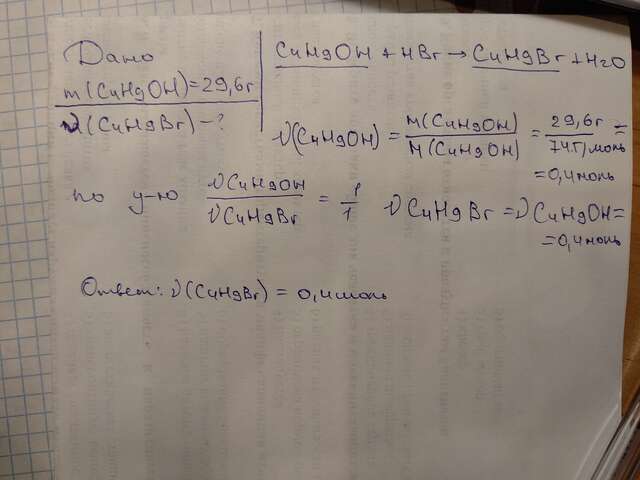 Дано
m(C4H9OH)=29,6г
ν(C4H9Br)-?
C4H9OH + HBr → C4H9Br + H2O
ν(C4H9OH) = M(C4H9OH) / M(C4H9OH) = 29,6г / 74г/моль =
= 0,4моль
по у-ю νC4H9OH / νC4H9Br = 1/1 νC4H9Br = νC4H9OH =
= 0,4моль
Ответ: ν(C4H9Br) = 0,4моль